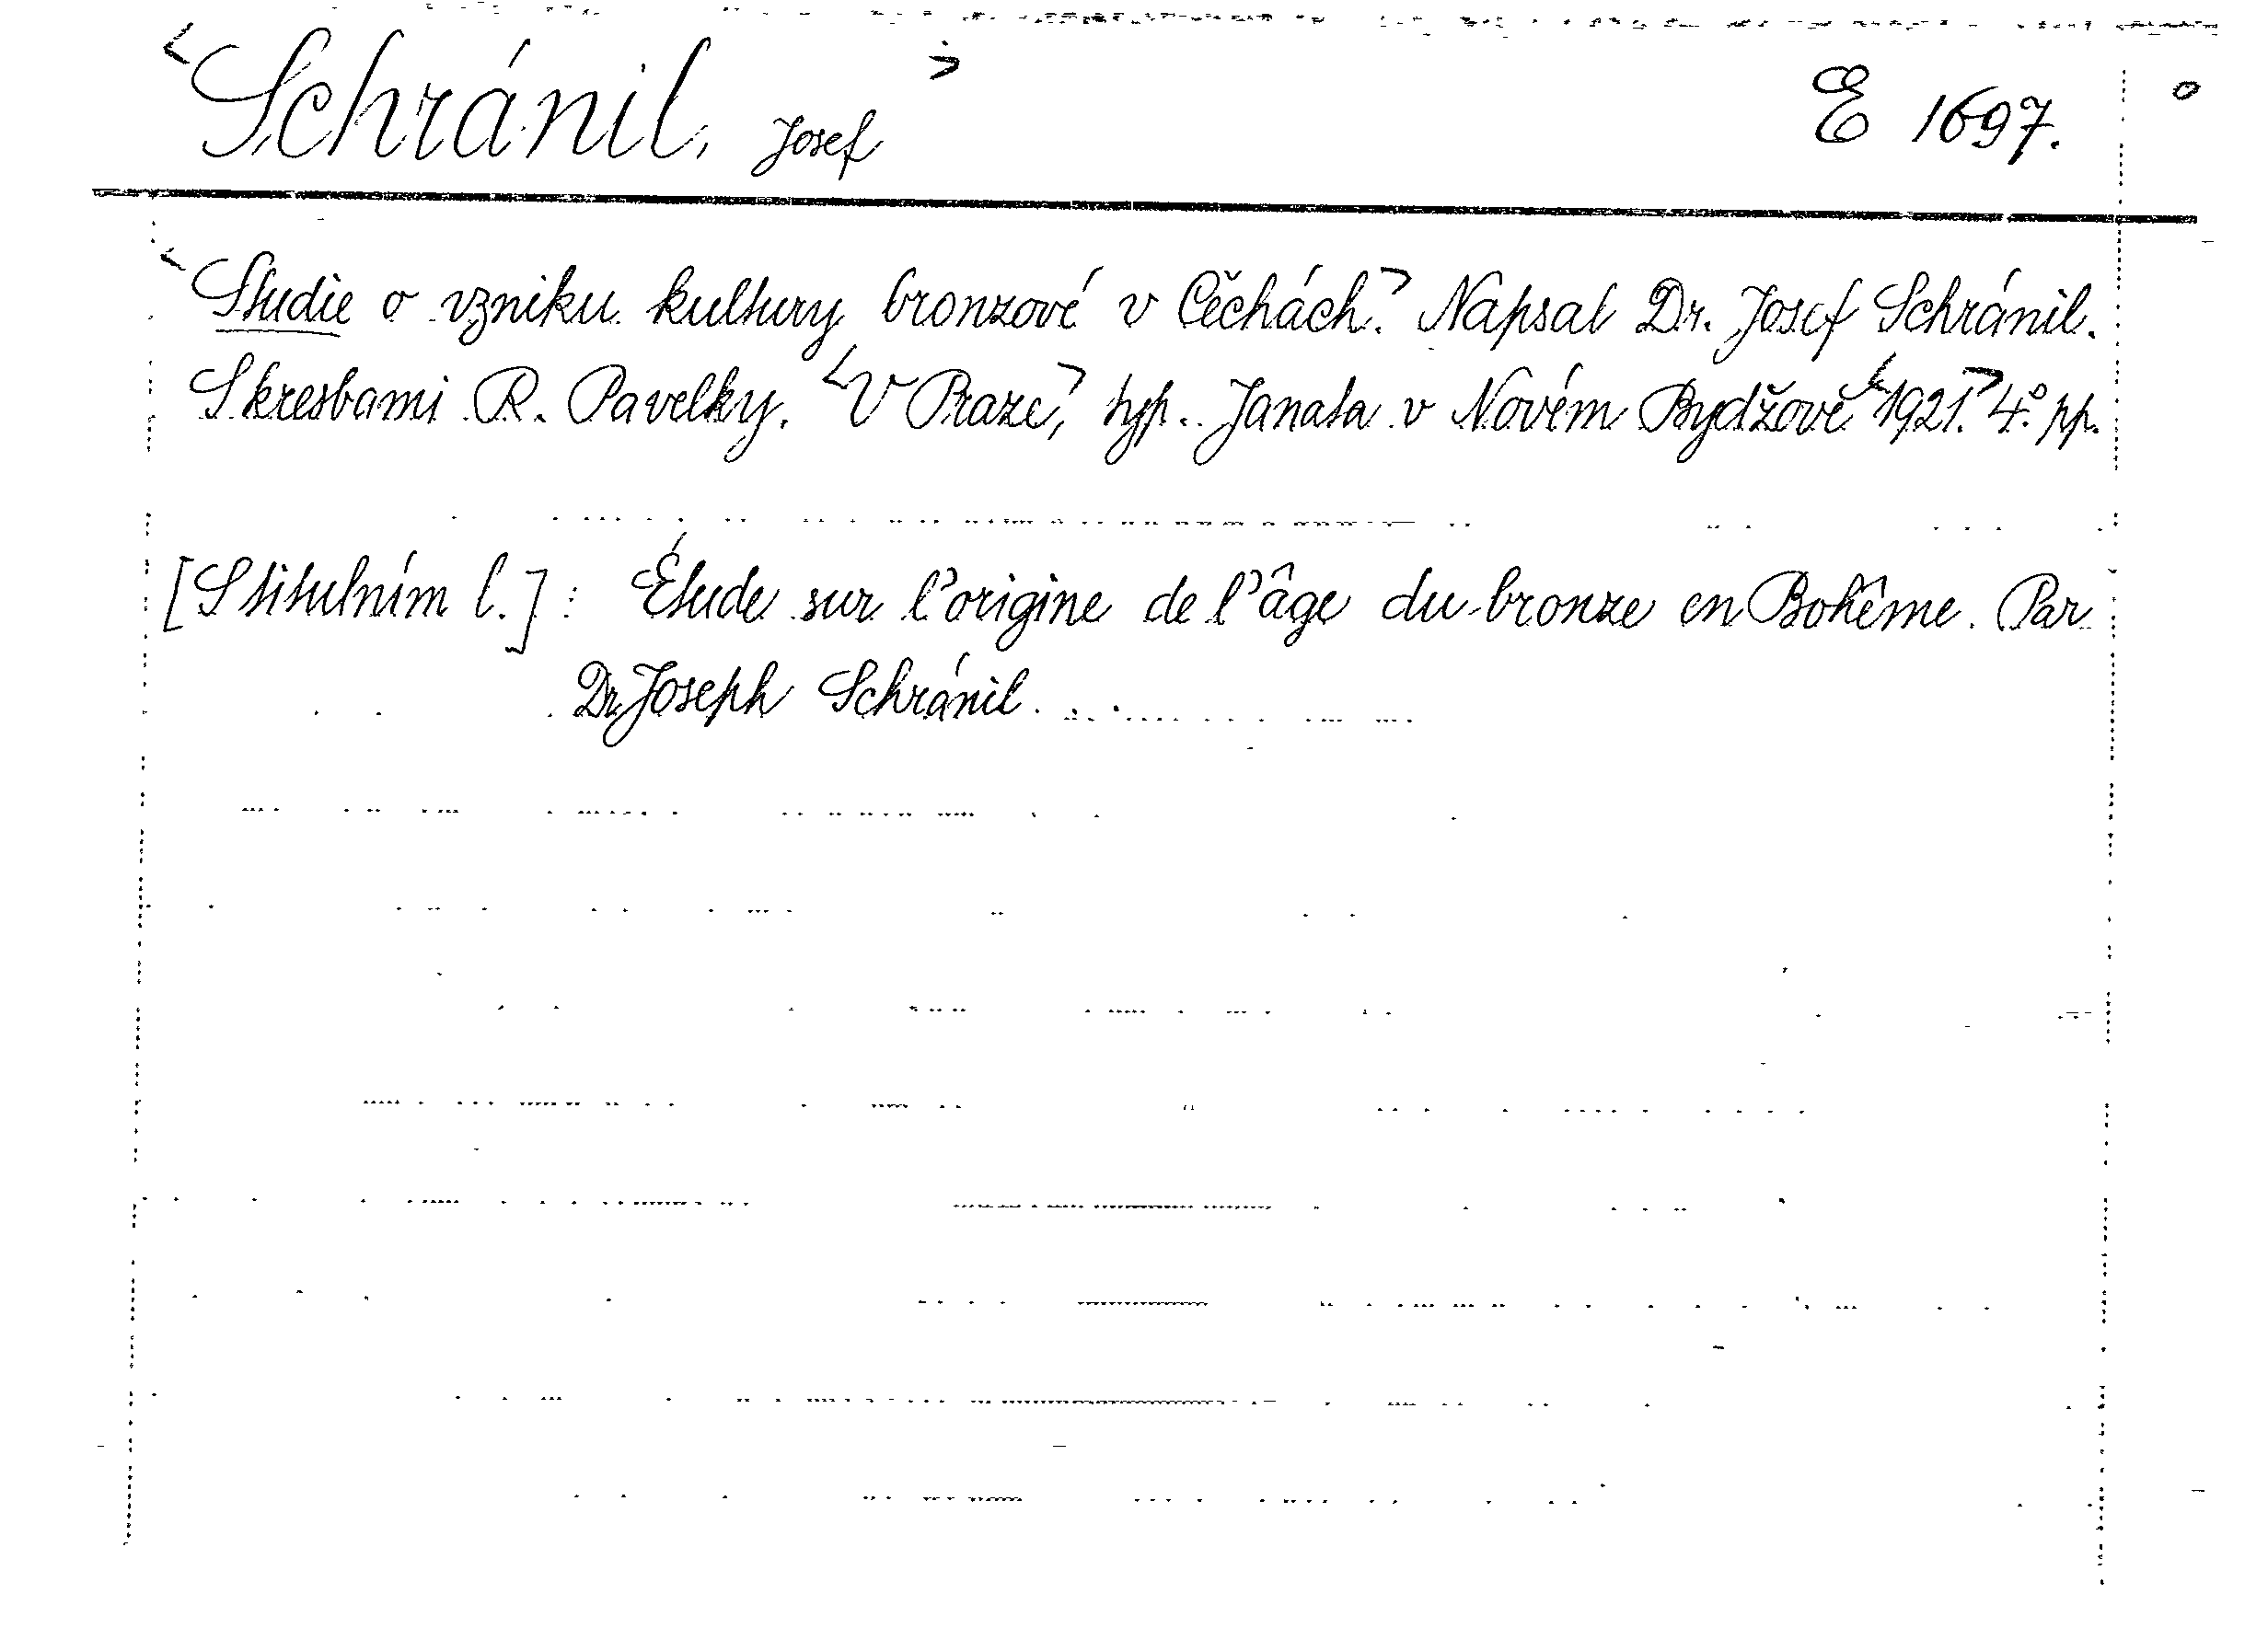 <Schránil, Josef> E 1697.
<Studie o vzniku kultury bronzové v Čechách.> Napsal Dr. Josef Schránil.
S kresbami R. Pavelky. <V Praze,> typ. Janata v Novém Bydžově <1921.> 4° pp.
[S titulním l.]: Étude sur l'origine de l'âge du bronze en Bohême. Par
Dr Joseph Schránil...